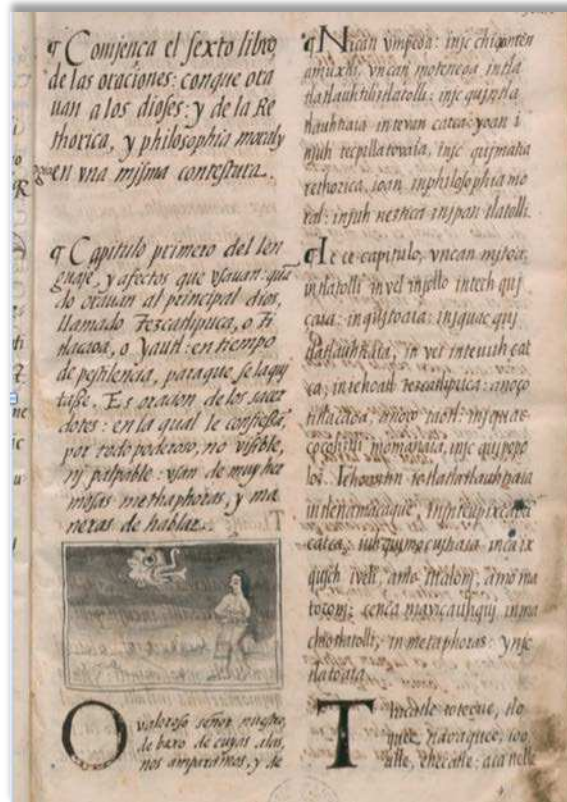 ¶ Comiença el sexto libro,
de las oraciones: conque ora
uan a los dioses: y de la Re
thorica, y philosophia moraly
en vna misma contestura.
¶ Capitulo primero del len
guaje, y afectos que vsauan: quã
do orauan al principal dios,
llamado Tezcatlipuca, o Ti
tlacaoa, o Yautl: en tiempo
de pestilencia, paraque se laqui
tasse. Es oracion de los sacer
dotes: en la qual le confiessã,
por todo poderoso, no visible,
nj palpable: vsan de muy her
mosas methaphoras, y ma
neras de hablar.
O valeroso señor nuestro,
de baxo de cuyas alas,
nos amparamos, y de
¶ Nican vmpeoa: injc chiquacen
amuxtli, vncan moteneoa
tlatlauhtiliztlatolli: injc quintla
tlauhtiaia inteuan catca: yoan i
njuh tecpillatoaia, injc quimatia
rethorica, ioan inphilosophia mo
ral: injuh neztica injpan tlatolli.
¶ Ic ce capitulo, vncan mitoa,
in tlatolli in vel injollo intech qui
çaia: inquitoaia: injquac qui
tlatlauhtiaia, in vei inteuuh cat
ca; in iehoatl Tezcatlipuca: anoço
titlacaoa, anoço iaotl: injquac
cocoliztli momanaia, injc quipopo
loz. Iehoantin tetlatlatlauhtiaia
in tlenamacaque,
catca: iuh quimocujtiaia incaix
quich iveli, amo ittalonj, amo ma
toconj; cenca maviçauhqui inma
chiotlatolli, in metaphoras: ynjc
tlatoaia.
Tlacatle totecue, tlo
quee, naoaquee, ioo
alle, ehecatle: aca nelle